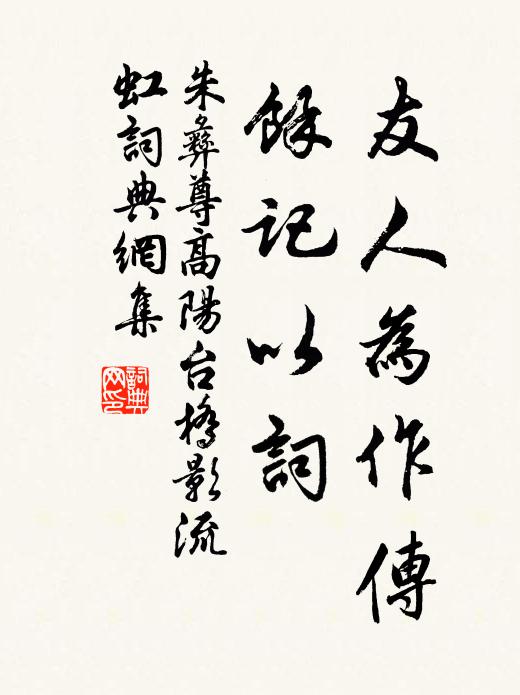 友人為作傳
餘記以詞
朱彝尊高陽台橋影流
虹詞典網集
詞典
网印